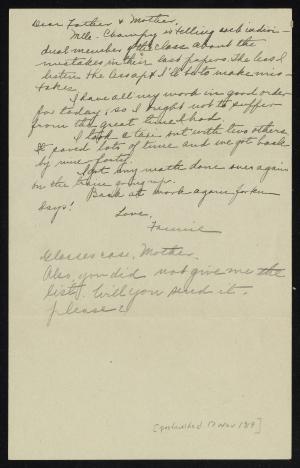 Dear Father & Mother,
Mlle. Champy is telling each indivi-
dual member of the class about the
mistakes in their last papers. The less I
listen the less apt I'll be to make mis-
takes.
I have all my work in good order
for today, so I ought not to suffer
from the great time I had.
I took a taxi out with two others
It saved lots of time and we got back
by nine-forty.
I got my math done over again
on the train going up.
Back at work again for ten
days!
Love,
Fannie
Glasses case, Mother.
Also, you did not give me the
list. Will you send it,
please?
[postmarked 17 Nov 1919]